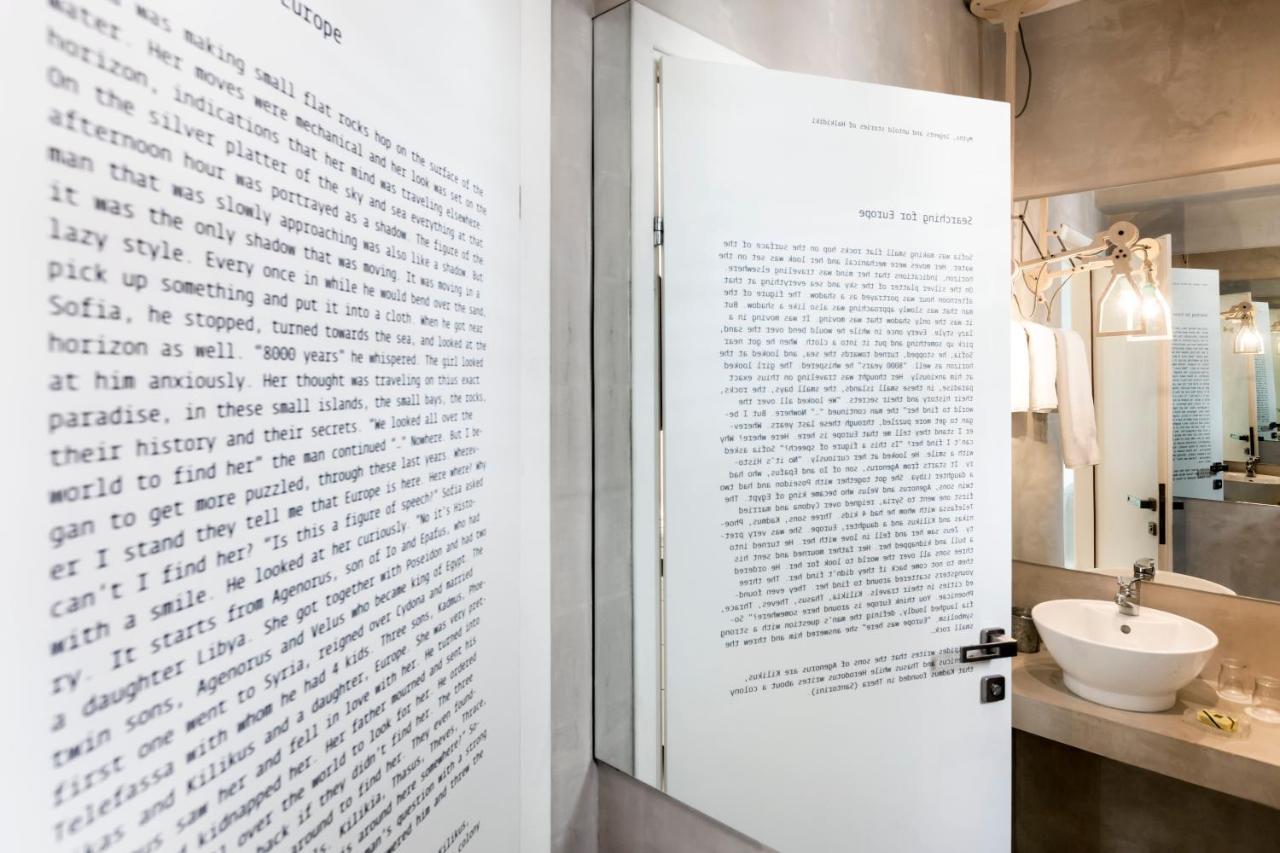 Europe
was making small flat rocks hop on the surface of the
water. Her moves were mechanical and her look was set on the
horizon, indications that her mind was traveling elsewhere.
On the silver platter of the sky and sea everything at that
afternoon hour was portrayed as a shadow. The figure of the
man that was slowly approaching was also like a shadow. But
it was the only shadow that was moving. It was moving in a
lazy style. Every once in while he would bend over the sand,
pick up something and put it into a cloth. When he got near
Sofia, he stopped, turned towards the sea, and looked at the
horizon as well. "8000 years" he whispered. The girl looked
at him anxiously. Her thought was traveling on thius exact
paradise, in these small islands, the small bays, the rocks,
their history and their secrets. "We looked all over the
world to find her" the man continued "…" Nowhere. But I be-
gan to get more puzzled, through these last years. Wherev-
er I stand they tell me that Europe is here. Here where? Why
can't I find her? "Is this a figure of speech?" Sofia asked
with a smile. He looked at her curiously. "No it's Histo-
ry. It starts from Agenorus, son of Io and Epafus, who had
a daughter Libya. She got together with Poseidon and had two
twin sons, Agenorus and Velus who became king of Egypt. The
first one went to Syria, reigned over Cydona and married
Telefassa with whom he had 4 kids. Three sons, Kadmus, Phoe-
nikas and Kilikus and a daughter, Europe. She was very pret-
Zeus saw her and fell in love with her. He turned into
kidnapped her. Her father mourned and sent his
all over the world to look for her. He ordered
back if they didn't find her. The three
around to find her. They even found-
Kilikia, Thasus, Theves, Thrace,
is around here somewhere?" So-
man's question with a strong
answered him and threw the
Kilikus,
colony
Myths, legents and untold stories of Halkidiki
Searching for Europe
Sofia was making small flat rocks hop on the surface of the
water. Her moves were mechanical and her look was set on the
horizon, indications that her mind was traveling elsewhere.
On the silver platter of the sky and sea everything at that
afternoon hour was portrayed as a shadow. The figure of the
man that was slowly approaching was also like a shadow. But
it was the only shadow that was moving. It was moving in a
lazy style. Every once in while he would bend over the sand,
pick up something and put it into a cloth. When he got near
Sofia, he stopped, turned towards the sea, and looked at the
horizon as well. "8000 years" he whispered. The girl looked
at him anxiously. Her thought was traveling on thius exact
paradise, in these small islands, the small bays, the rocks,
their history and their secrets. "We looked all over the
world to find her" the man continued "…" Nowhere. But I be-
gan to get more puzzled, through these last years. Wherev-
er I stand they tell me that Europe is here. Here where? Why
can't I find her? "Is this a figure of speech?" Sofia asked
with a smile. He looked at her curiously. "No it's Histo-
ry. It starts from Agenorus, son of Io and Epafus, who had
a daughter Libya. She got together with Poseidon and had two
twin sons, Agenorus and Velus who became king of Egypt. The
first one went to Syria, reigned over Cydona and married
Telefassa with whom he had 4 kids. Three sons, Kadmus, Phoe-
nikas and Kilikus and a daughter, Europe. She was very pret-
ty. Zeus saw her and fell in love with her. He turned into
a bull and kidnapped her. Her father mourned and sent his
three sons all over the world to look for her. He ordered
them to not come back if they didn't find her. The three
youngsters scattered around to find her. They even found-
ed cities in their travels. Kilikia, Thasus, Theves, Thrace,
Phoenicae. You think Europe is around here somewhere?" So-
fia laughed loudly, defing the man's question with a strong
symbolism. "Europe was here" she answered him and threw the
small rock.
writes that the sons of Agenorus are Kilikus,
and Thasus while Herodotus writes about a colony
that Kadmus founded in Thera (Santorini).